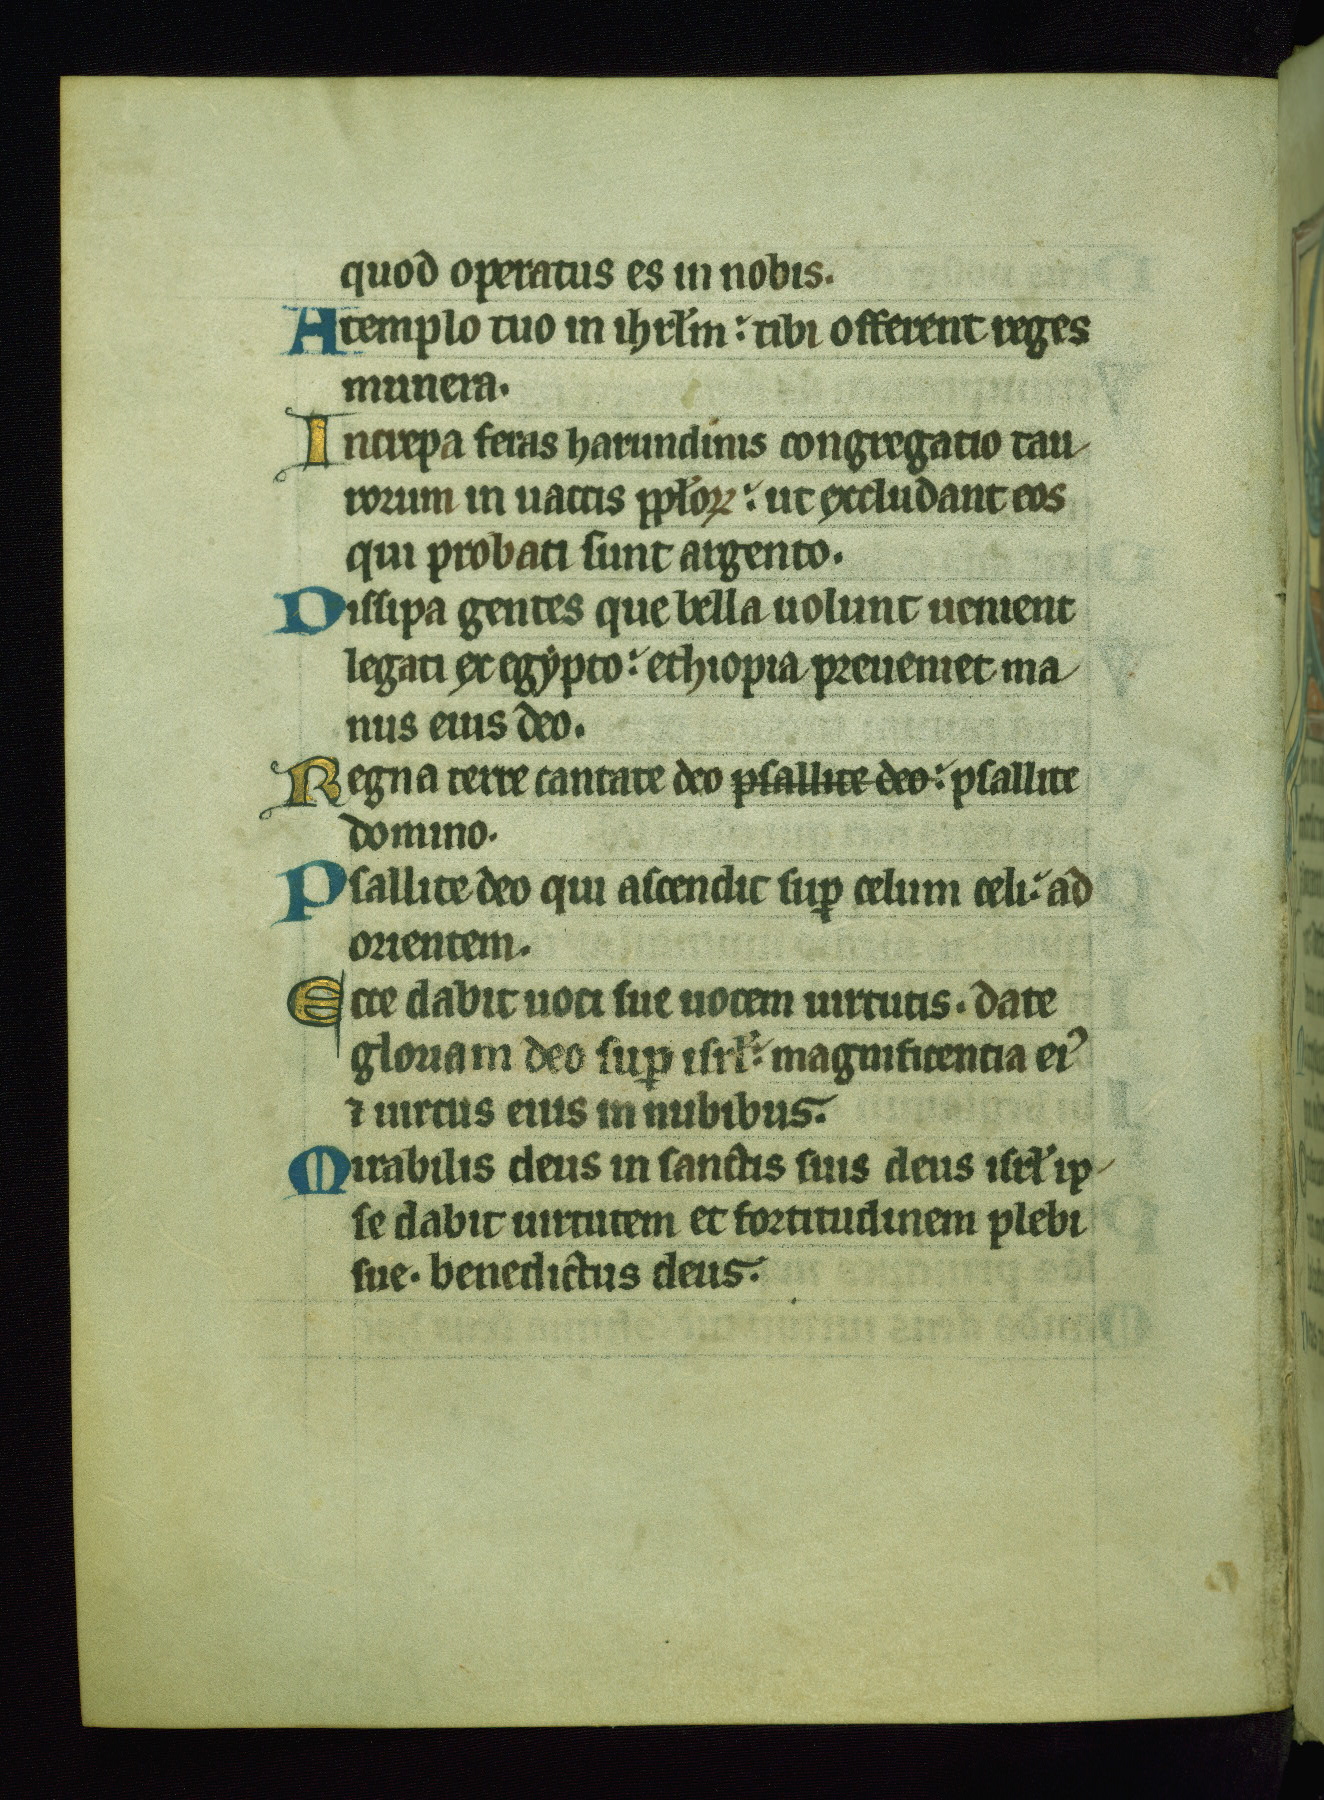 quod operatus es in nobis.
A templo tuo in ihrłm: tibi offerent reges
munera.
Increpa feras harundinis congregatio tau
rorum in uaccis ppłoꝝ: ut excludant eos
qui probati sunt argento.
Dissipa gentes que bella uolunt uenient
legati ex egypto: ethiopia preueniet ma
nus eius deo.
Regna terre cantate deo psallite deo: psallite
domino.
Psallite deo qui ascendit suꝑ celum celi: ad
orientem.
Ecce dabit uoci sue uocem uirtutis. date
gloriam deo suꝑ isrł: magnificentia eiꝰ
⁊ uirtus eius in nubibus.
Mirabilis deus in sanctis suis deus isrł ip
se dabit uirtutem et fortitudinem plebi
sue. benedictus deus.